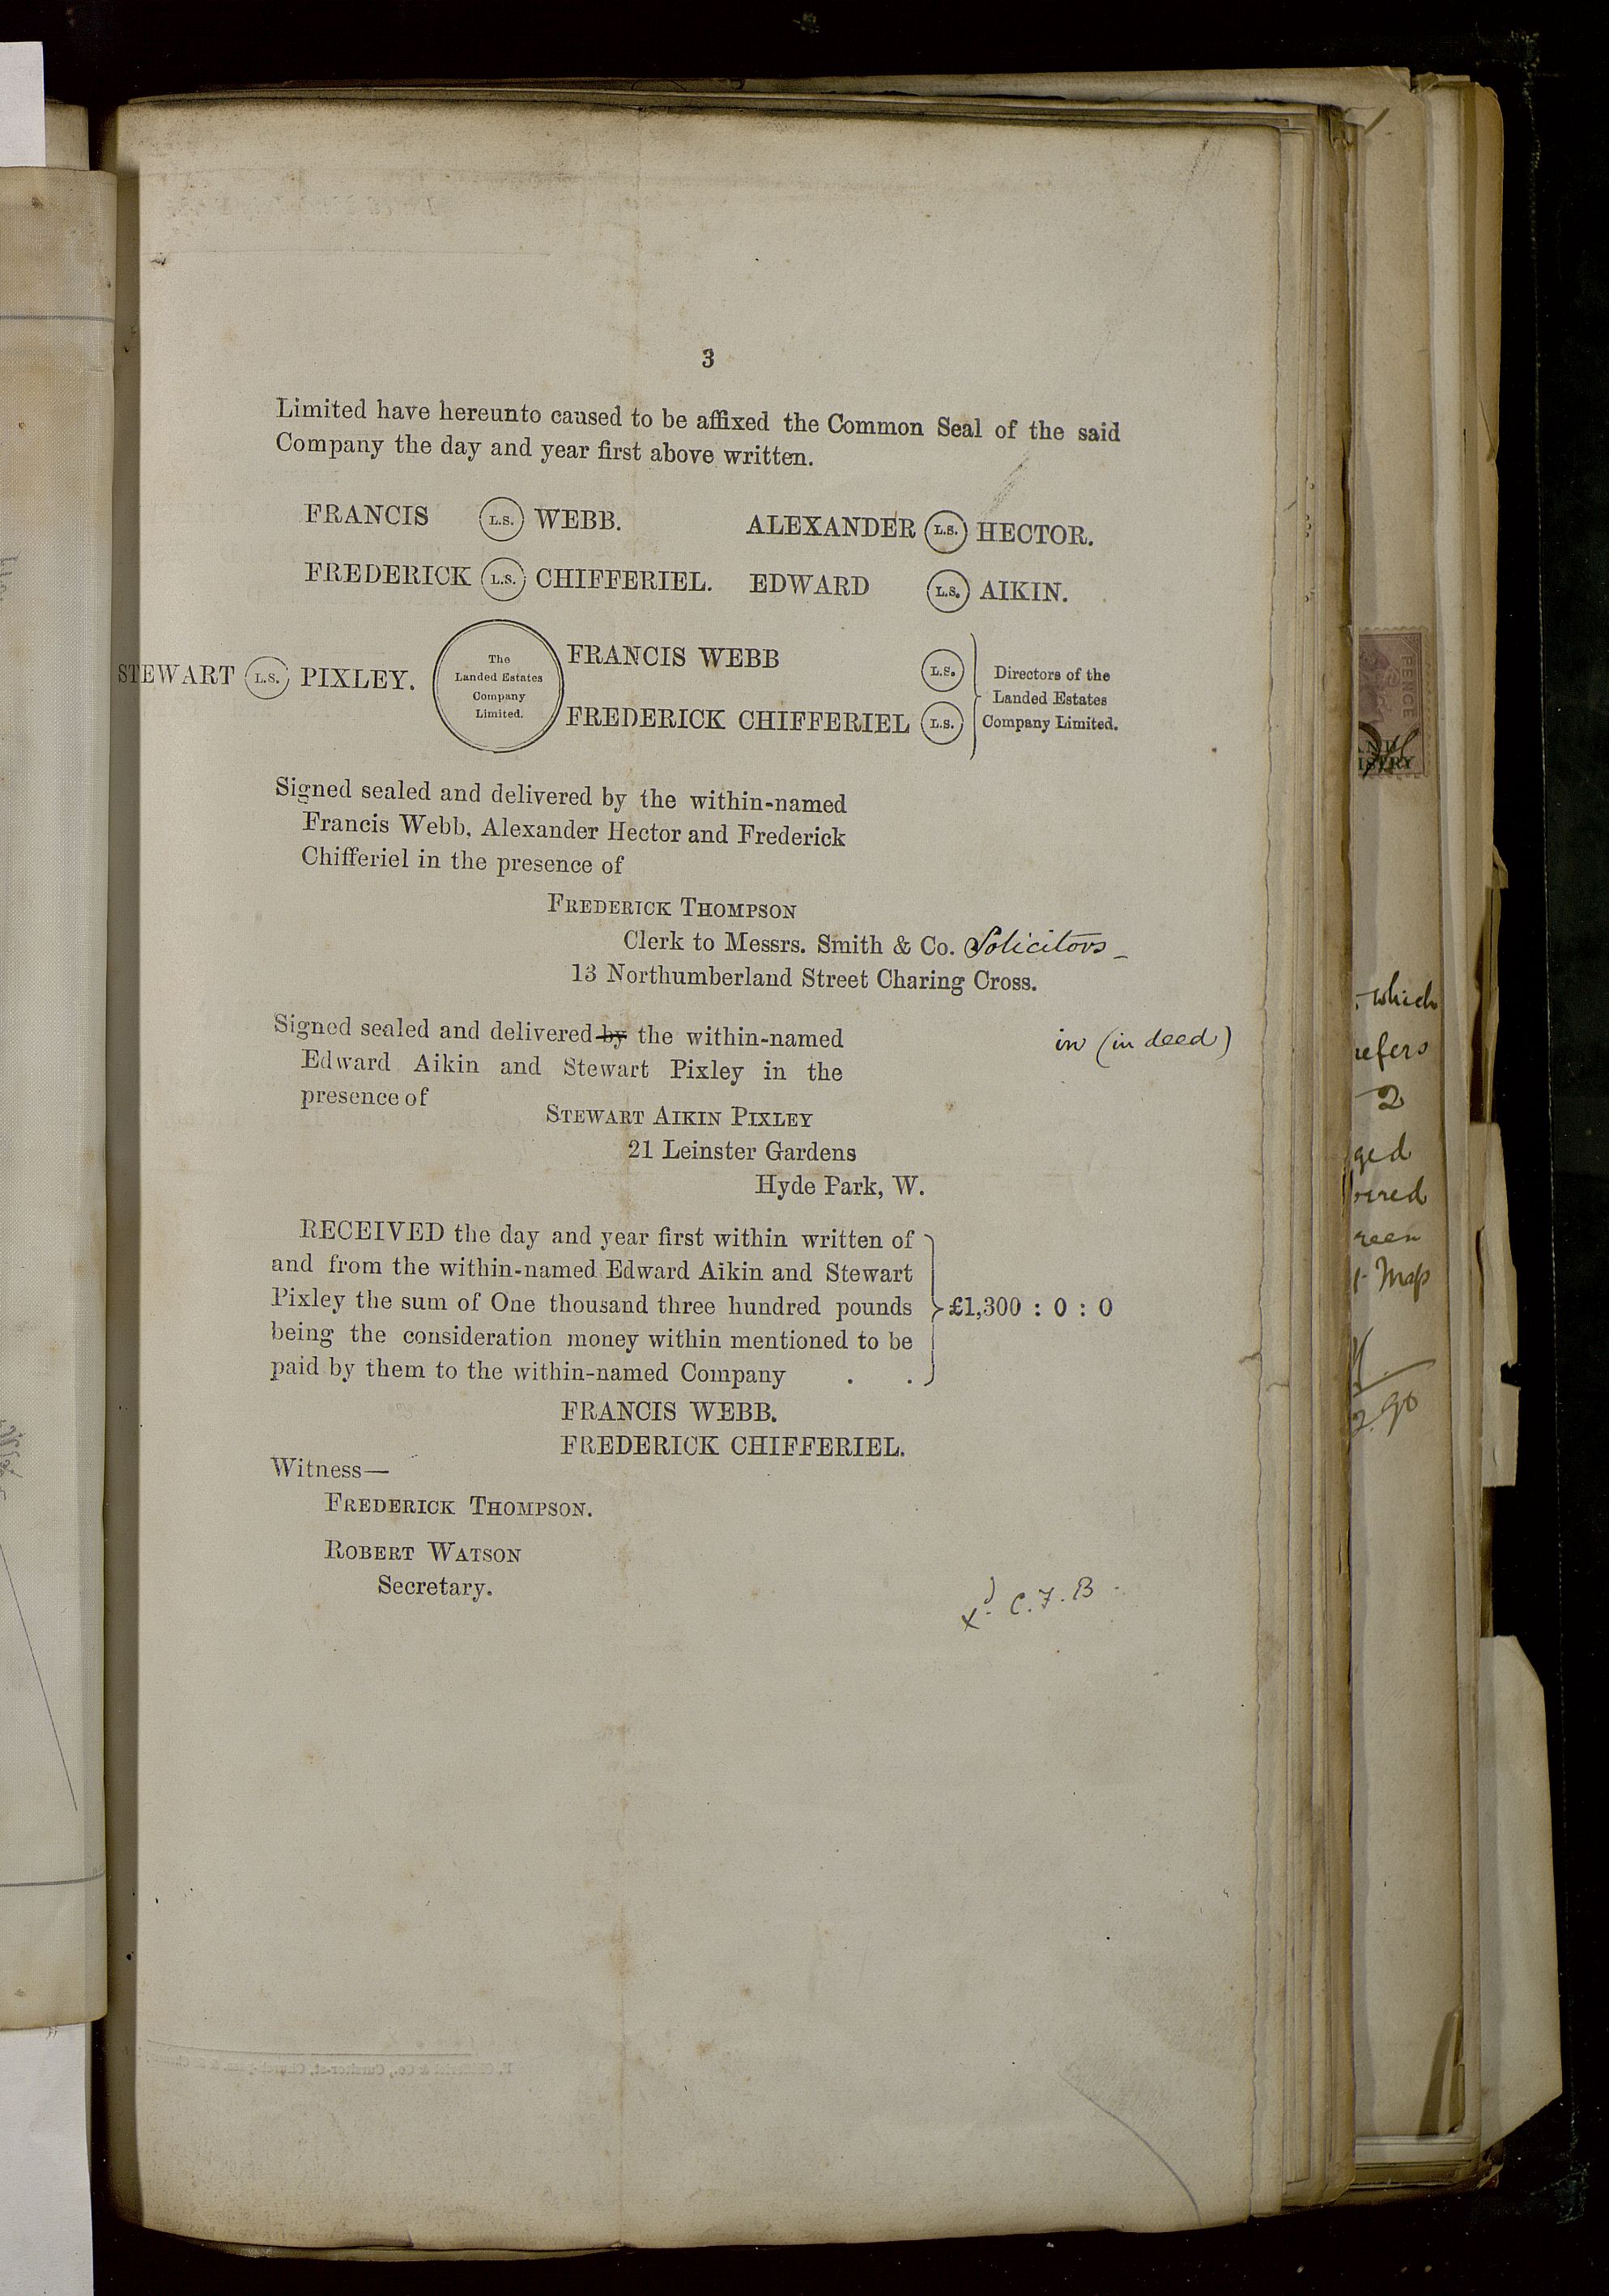 3
Limited have hereunto caused to be affixed the Common Seal of the said
Company the day and year first above written.
FRANCIS L.S. WEBB. ALEXANDER L.S. HECTOR.
FREDERICK L.S. CHIFFERIEL. EDWARD L.S. AIKIN.
STEWART L.S. PIXLEY.
The
Landed Estates
Company
Limited.
FRANCIS WEBB L.S.
FREDERICK CHIFFERIEL L.S.
Directors of the
Landed Estates
Company Limited.
Signed sealed and delivered by the within-named
Francis Webb, Alexander Hector and Frederick
Chifferiel in the presence of
FREDERICK THOMPSON
Clerk to Messrs. Smith & Co. Solicitors
13 Northumberland Street Charing Cross.
Signed sealed and delivered by the within-named in (in deed)
Edward Aikin and Stewart Pixley in the
presence of
STEWART AIKIN PIXLEY
21 Leinster Gardens
Hyde Park, W.
RECEIVED the day and year first within written of
and from the within-named Edward Aikin and Stewart
Pixley the sum of One thousand three hundred pounds £1,300 : 0 : 0
being the consideration money within mentioned to be
paid by them to the within-named Company . .
FRANCIS WEBB.
FREDERICK CHIFFERIEL.
Witness—
FREDERICK THOMPSON.
ROBERT WATSON
Secretary.
C.F.B.
PENCE
which
refers
2
Map